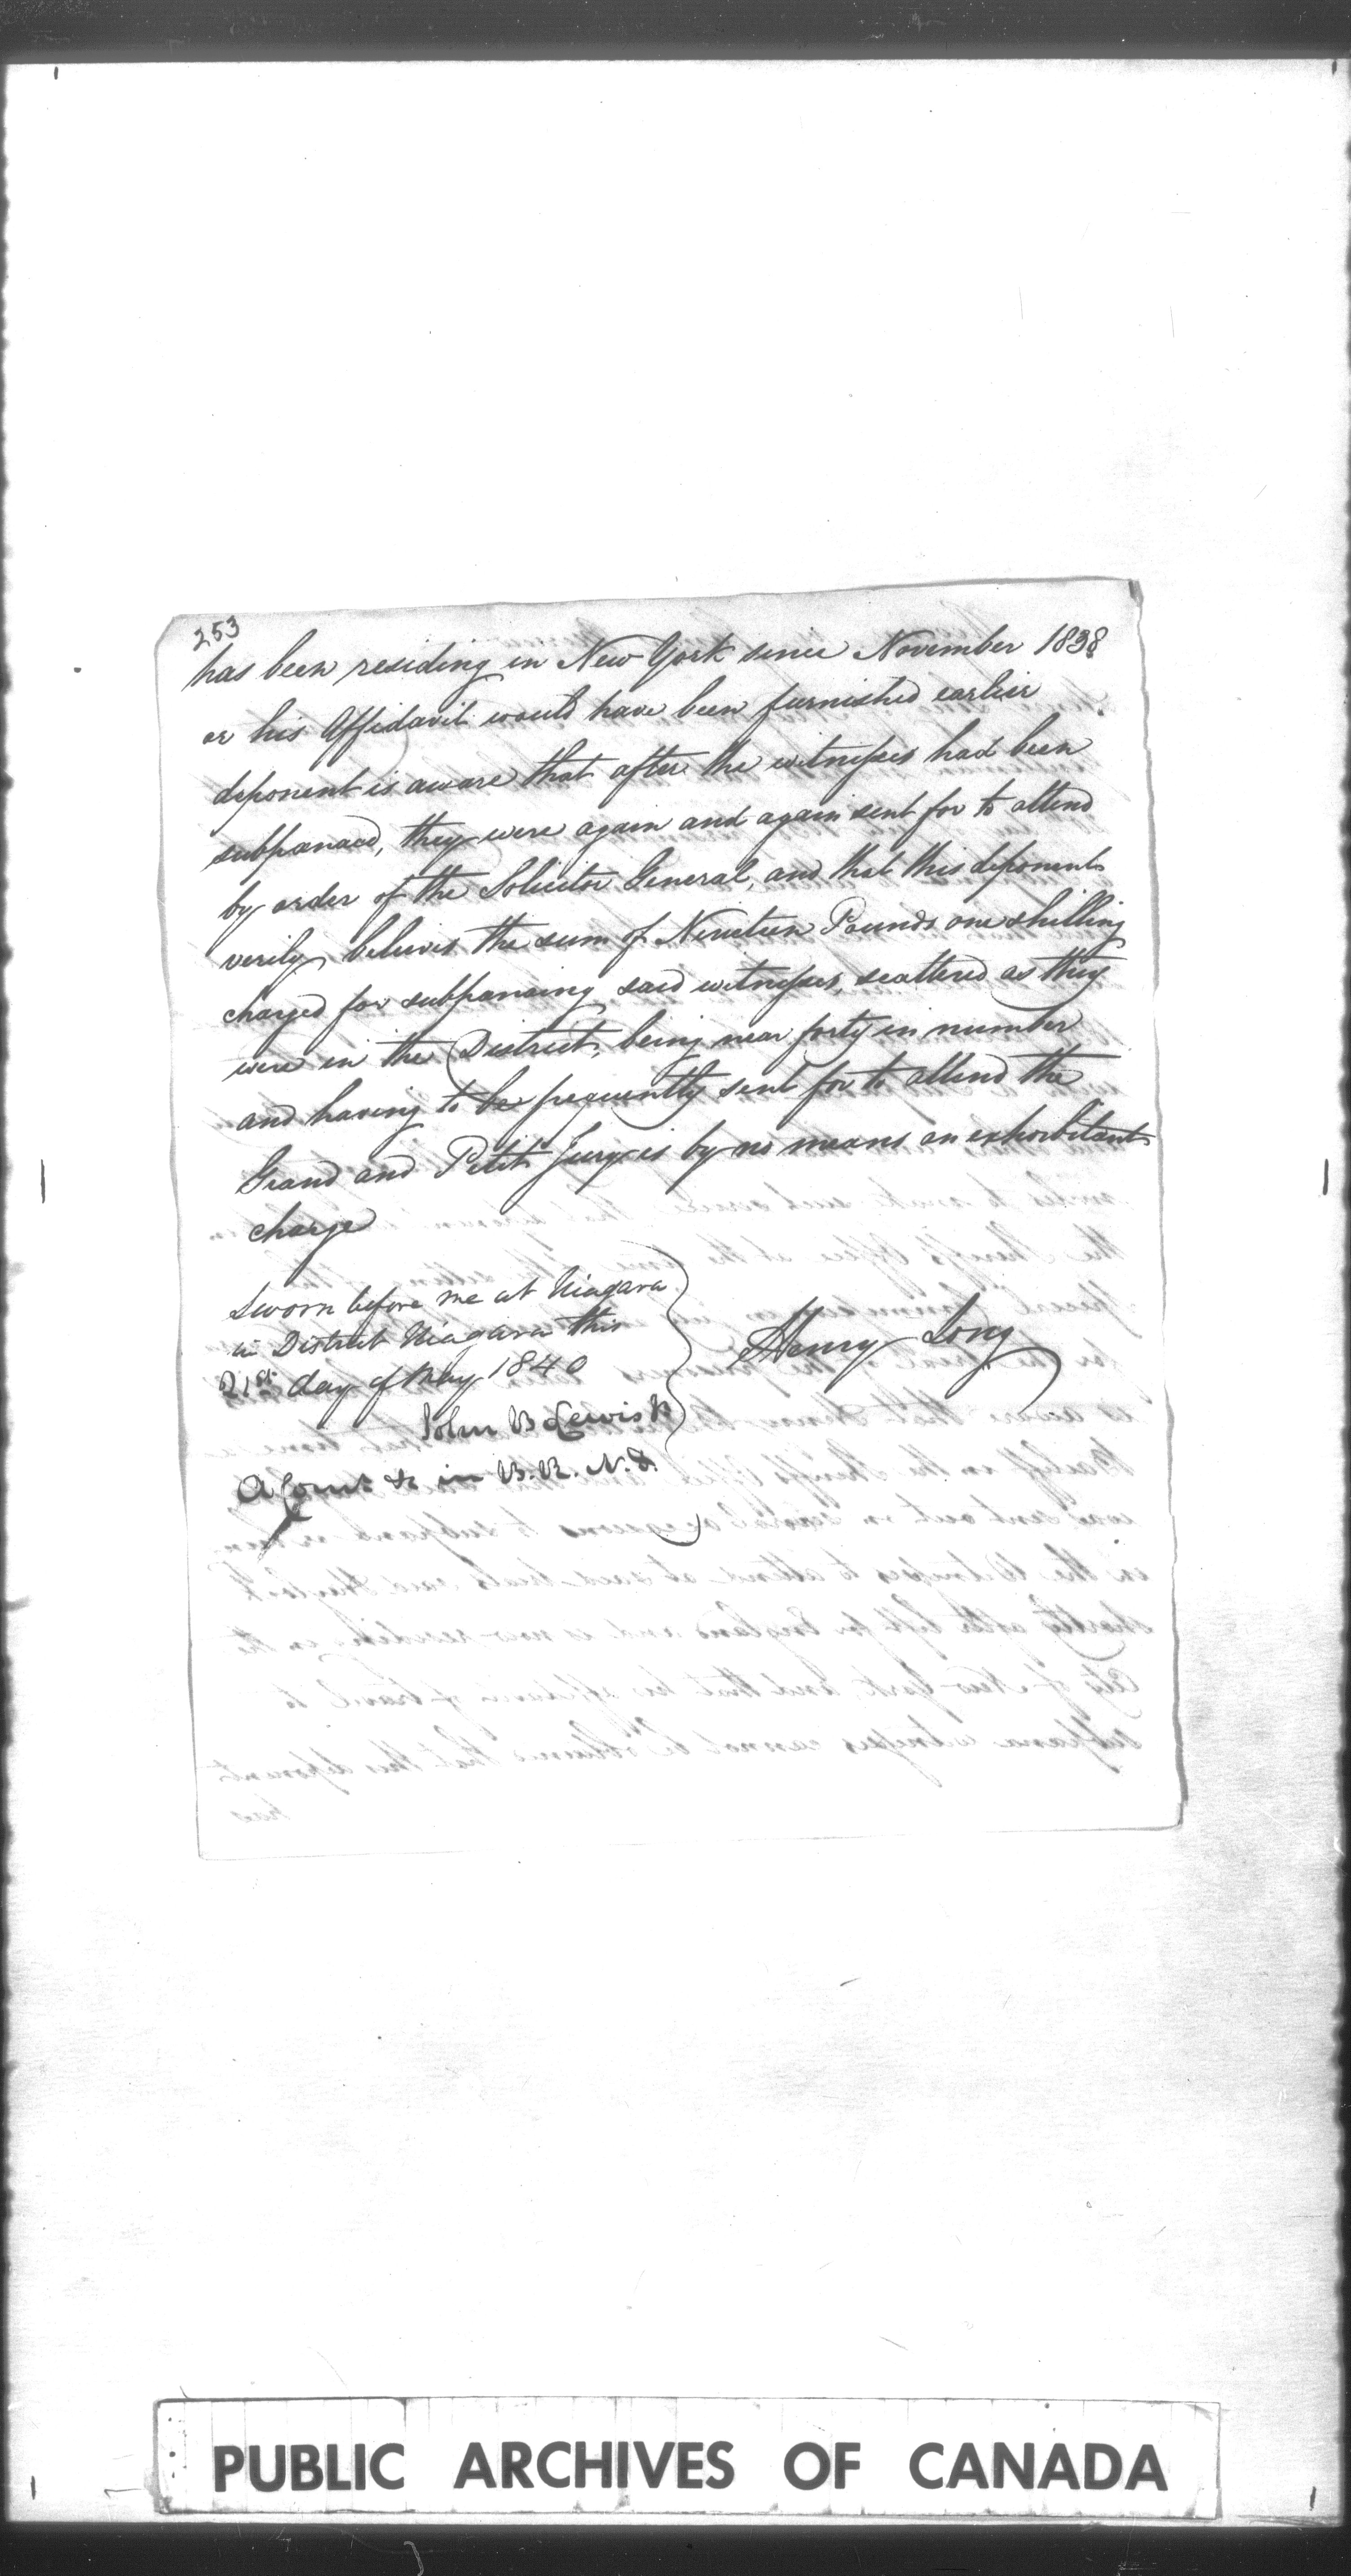 253
has been residing in New York since November 1838
or his Affidavit would have been furnished earlier
deponent is aware that after the witnesses had been
subpœnaed, they were again and again sent for to attend
by order of the Solicitor General, and that this deponent
verily believes the sum of Nineteen Pounds one shilling
charged for subpœnaing said witnesses, scattered as they
were in the District, being near forty in number
and having to be frequently sent for to attend the
Grand and Petit Jury is by no means an exhorbitant
charge
Sworn before me at Niagara
in District Niagara this
21st day of May 1840
Henry Long
John B Lewis
A Comr &c in B.R. N.D.
PUBLIC ARCHIVES OF CANADA